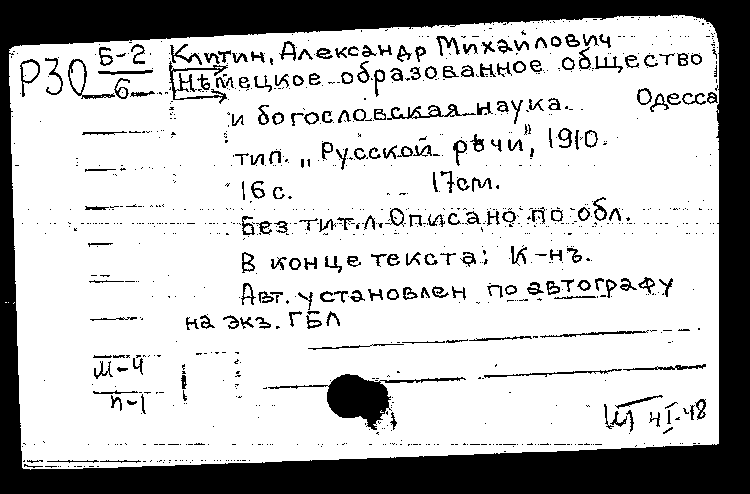 Р30 Б-2 Клитин, Александр Михайлович
6 Нѣмецкое образованное общество
и богословская наука. Одесса
тип. „Русской рѣчи", 1910.
16 с. 17 cm.
Без тит. л. Описано по обл.
В конце текста: К-нъ.
Авт. установлен по автографу
на экз. ГБЛ
Ш-4
п-1
48